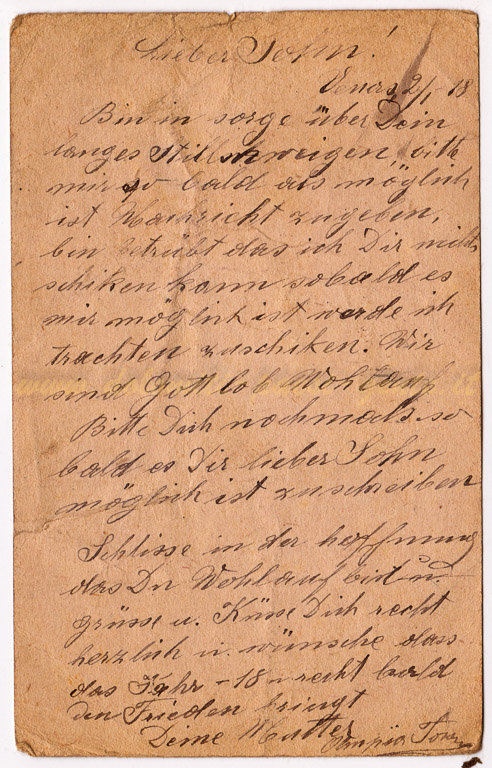 Lieber Sohn!
2/1 18
Bin in sorge über Dein
langes Stillschweigen, bitte
mir so bald als möglich
ist Nachricht zugeben,
bin betrübt das ich Dir nichts
schiken kann sobald es
mir möglich ist werde ich
trachten zuschiken. Wir
sind Gott lob Wohlauf
Bitte Dich nochmals so
bald es Dir lieber Sohn
möglich ist zuschreiben
Schlisse in der hoffnung
das Du Wohlauf bist u.
grüsse u. Küsse Dich recht
herzlich u. wünsche dass
das Jahr - 18 recht bald
den Frieden bringt
Deine Mutter